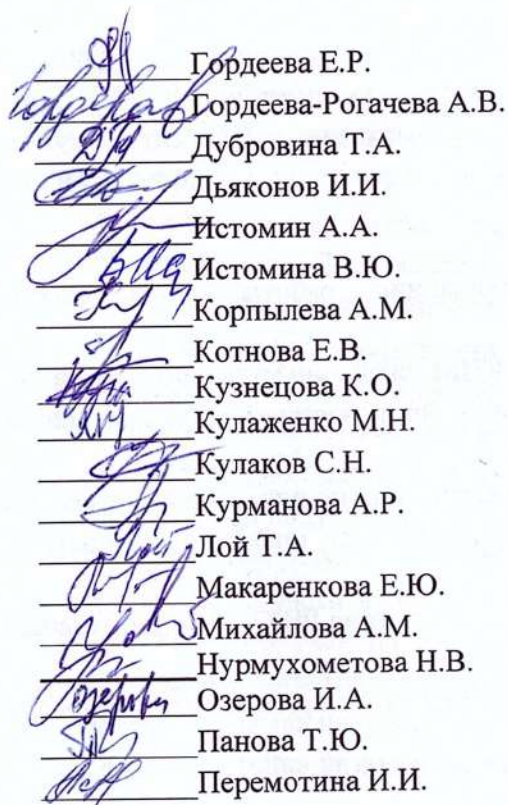 Гордеева Е.Р.
Гордеева-Рогачева А.В.
Дубровина Т.А.
Дьяконов И.И.
Истомин А.А.
Истомина В.Ю.
Корпылева А.М.
Котнова Е.В.
Кузнецова К.О.
Кулаженко М.Н.
Кулаков С.Н.
Курманова А.Р.
Лой Лой Т.А.
Макаренкова Е.Ю.
Михайлова А.М.
Нурмухометова Н.В.
Озерова Озерова И.А.
Панова Т.Ю.
Перемотина И.И.